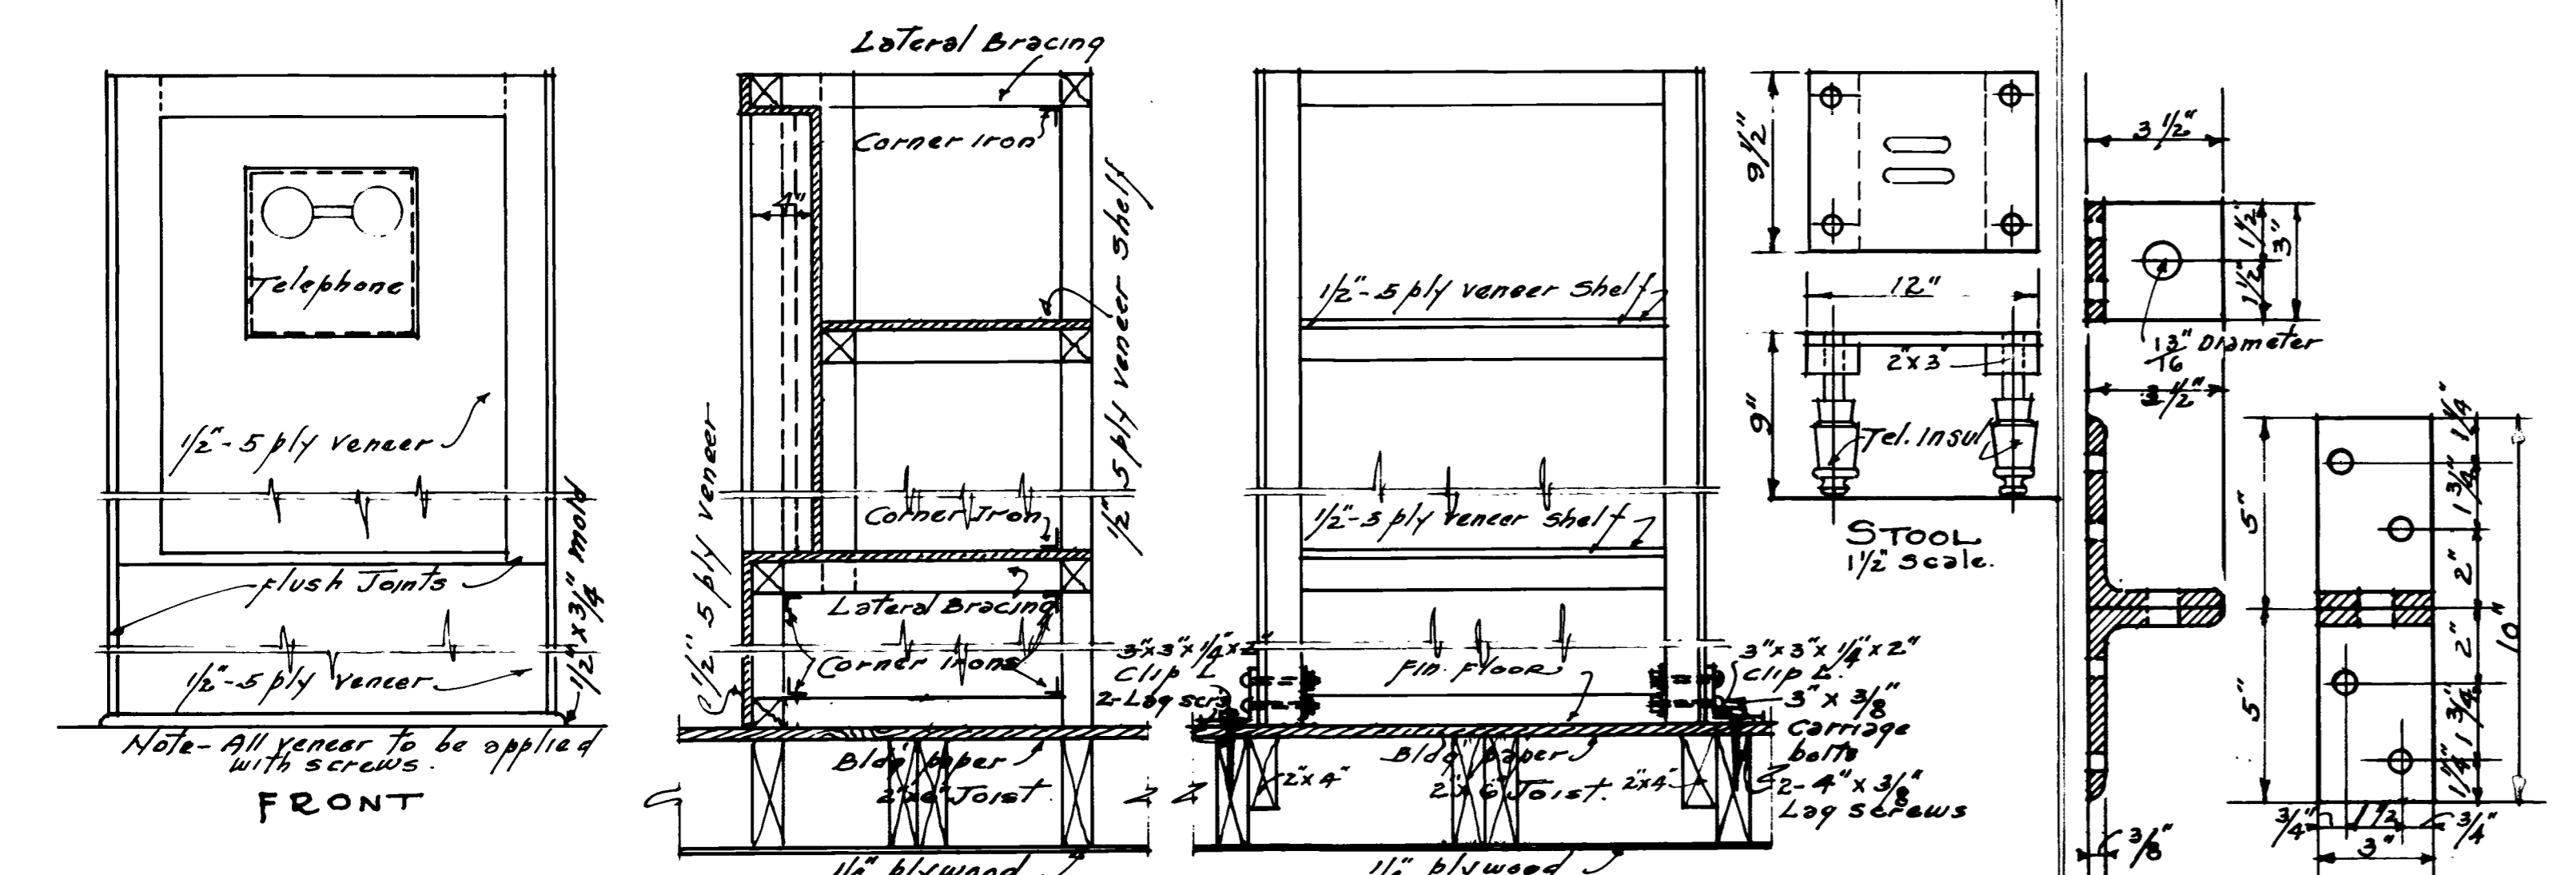 Telephone
1/2"-5 ply veneer
Flush Joints
1/2"-5 ply veneer
1/2" x 3/4" mold
Note-All veneer to be applied
with screws.
FRONT
Lateral Bracing
Corner Iron
4"
1/2" 5 ply veneer shelf
1/2" 5 ply veneer
Corner Iron
Lateral Bracing
Corner Irons
3"x3"x1/4"x2"
Clip L
2-Lag scrs
Bldg paper
2"x6" Joist.
1/2"-5 ply veneer shelf
1/2"-5 ply veneer shelf
Fin. Floor
3"x3"x1/4"x2"
Clip L.
3" x 3/8
Carriage
bolts
2-4" x 3/8"
Lag screws
Bldg paper
2"x4"
2"x6" Joist.
2"x4"
plywood
plywood
9 1/2"
12"
2"x3"
9"
Tel. Insul
STOOL
1 1/2" Scale.
3 1/2"
1 1/2"
1 1/2"
3"
13/16" Diameter
3 1/2"
3/8"
5"
5"
1 1/4"
1 3/4"
2"
2"
1 3/4"
1 1/4"
10"
3/4"
1 1/2
3/4"
3"